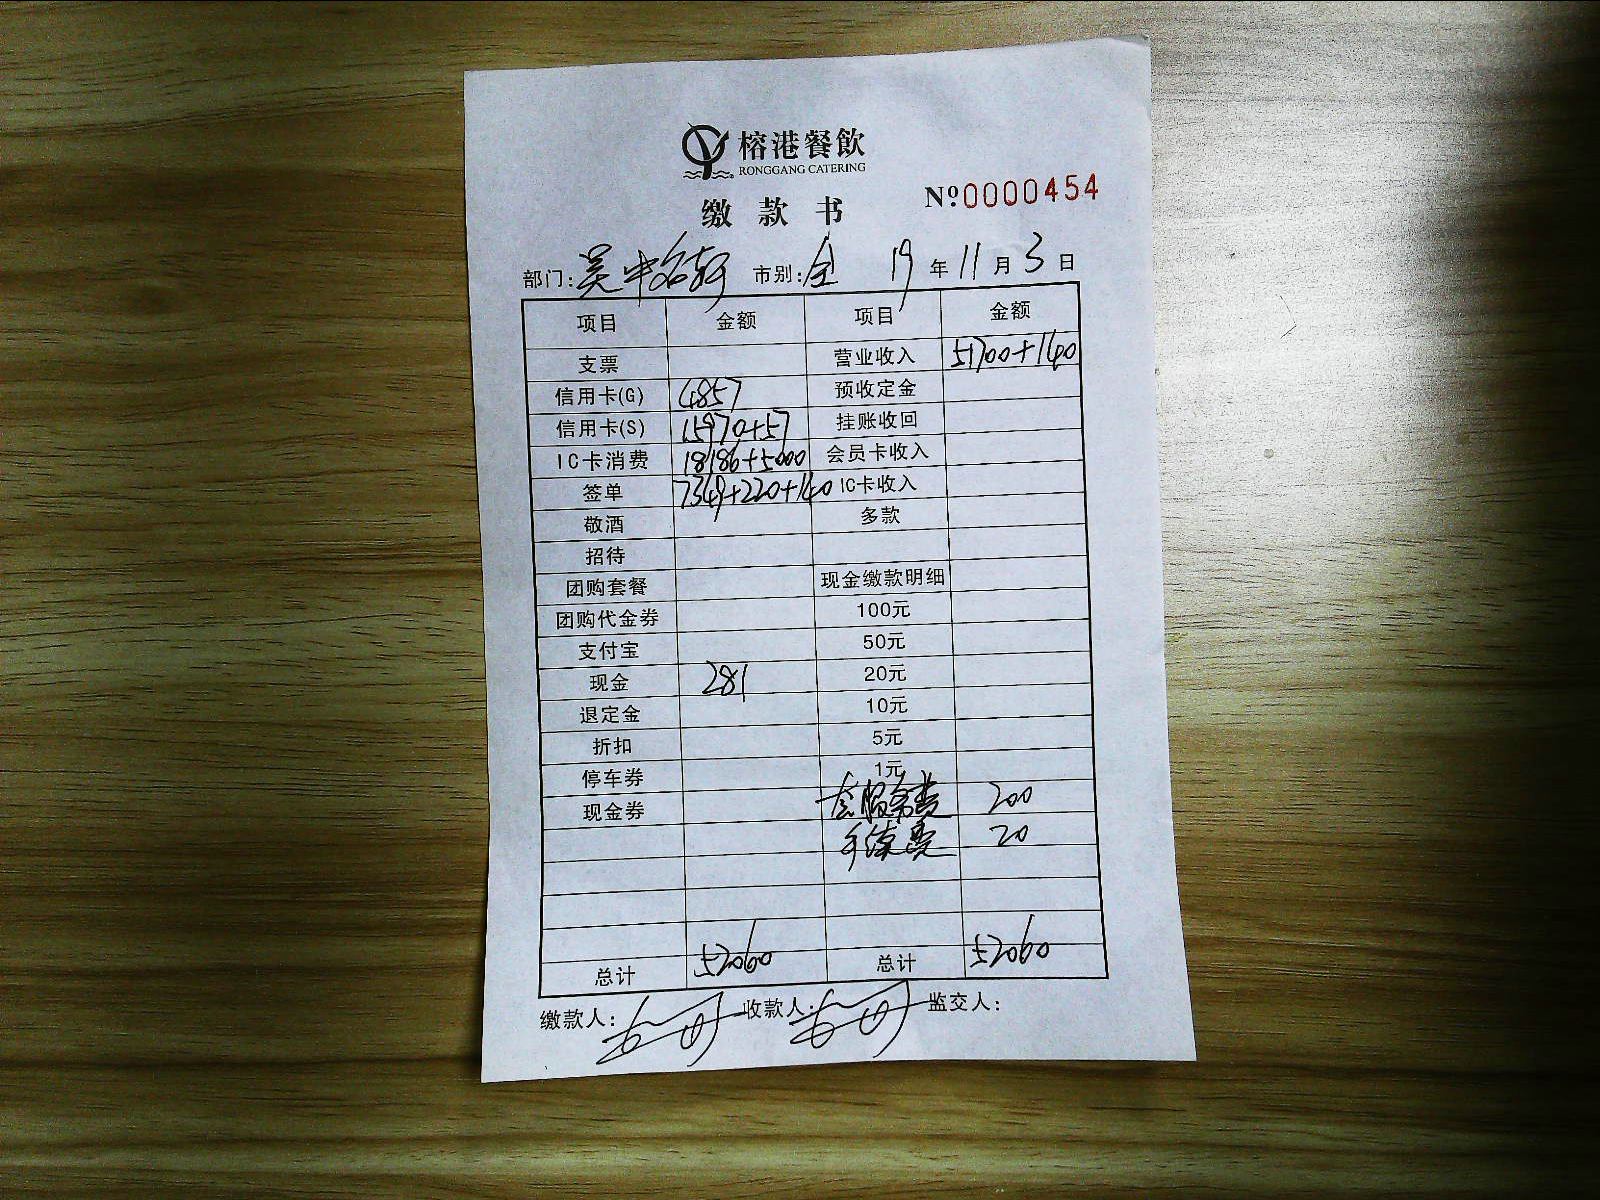 榕港餐飲
RONGGANG CATERING
缴款书
Nº:0000454
部门:吴中名轩 市别:全 19年11月3日
项目 金额 项目 金额
支票 营业收入 51700+140
信用卡(G) 4857 预收定金
信用卡(S) 15970+57 挂账收回
IC卡消费 18186+5000 会员卡收入
签单 7349+220+140 IC卡收入
敬酒 多款
招待
团购套餐 现金缴款明细
团购代金券 100元
支付宝 50元
现金 281 20元
退定金 10元
折扣 5元
停车券 1元
现金券 200
手续费 20
总计 52060 总计 52060
缴款人: 收款人: 监交人: